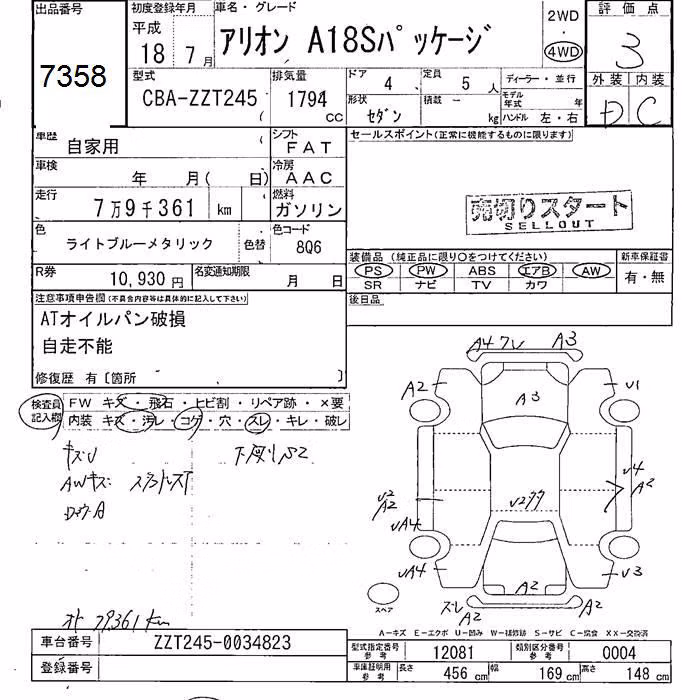 出品番号
7358
初度登録年月
平成
18 7 月
車名・グレード
アリオン A18Sパッケージ
2WD
4WD
評価点
3
外装 内装
D C
型式
CBA-ZZT245
排気量
1794 cc
ドア 4
定員 5 人
ディーラー・並行
形状 セダン
積載 ー kg
モデル年式 年
ハンドル 左・右
車歴
自家用
シフト
FAT
車検
年 月( 日)
冷房
AAC
走行
7万9千361 km
燃料
ガソリン
色
ライトブルーメタリック
色替
色コード
8Q6
R券
10,930 円
名変通知期限
月 日
セールスポイント(正常に機能するものに限ります)
売切りスタート
SELLOUT
装備品 (純正品に限り○をつけてください)
PS PW ABS エアB AW
SR ナビ TV カワ
新車保証書
有・無
後日品
注意事項申告欄(不具合内容等は具体的に記入して下さい)
ATオイルパン破損
自走不能
修復歴 有〔箇所 〕
検査員記入欄
FW キズ・飛石・ヒビ割・リペア跡・×要
内装 キズ・汚レ・コゲ・穴・スレ・キレ・破レ
キズU
AWキズ
下廻りS2
A3
A2
A3
U1
U4
A2
U2
A2
UA4
UA4
U3
A2
スレ
A2
A2
スペア
79361 km
A-キズ E-エクボ U-凹み W-補修跡 S-サビ C-腐食 XX-交換済
車台番号
ZZT245-0034823
登録番号
型式指定番号 参考
12081
類別区分番号 参考
0004
車庫証明用 参考
長さ 456 cm
幅 169 cm
高さ 148 cm